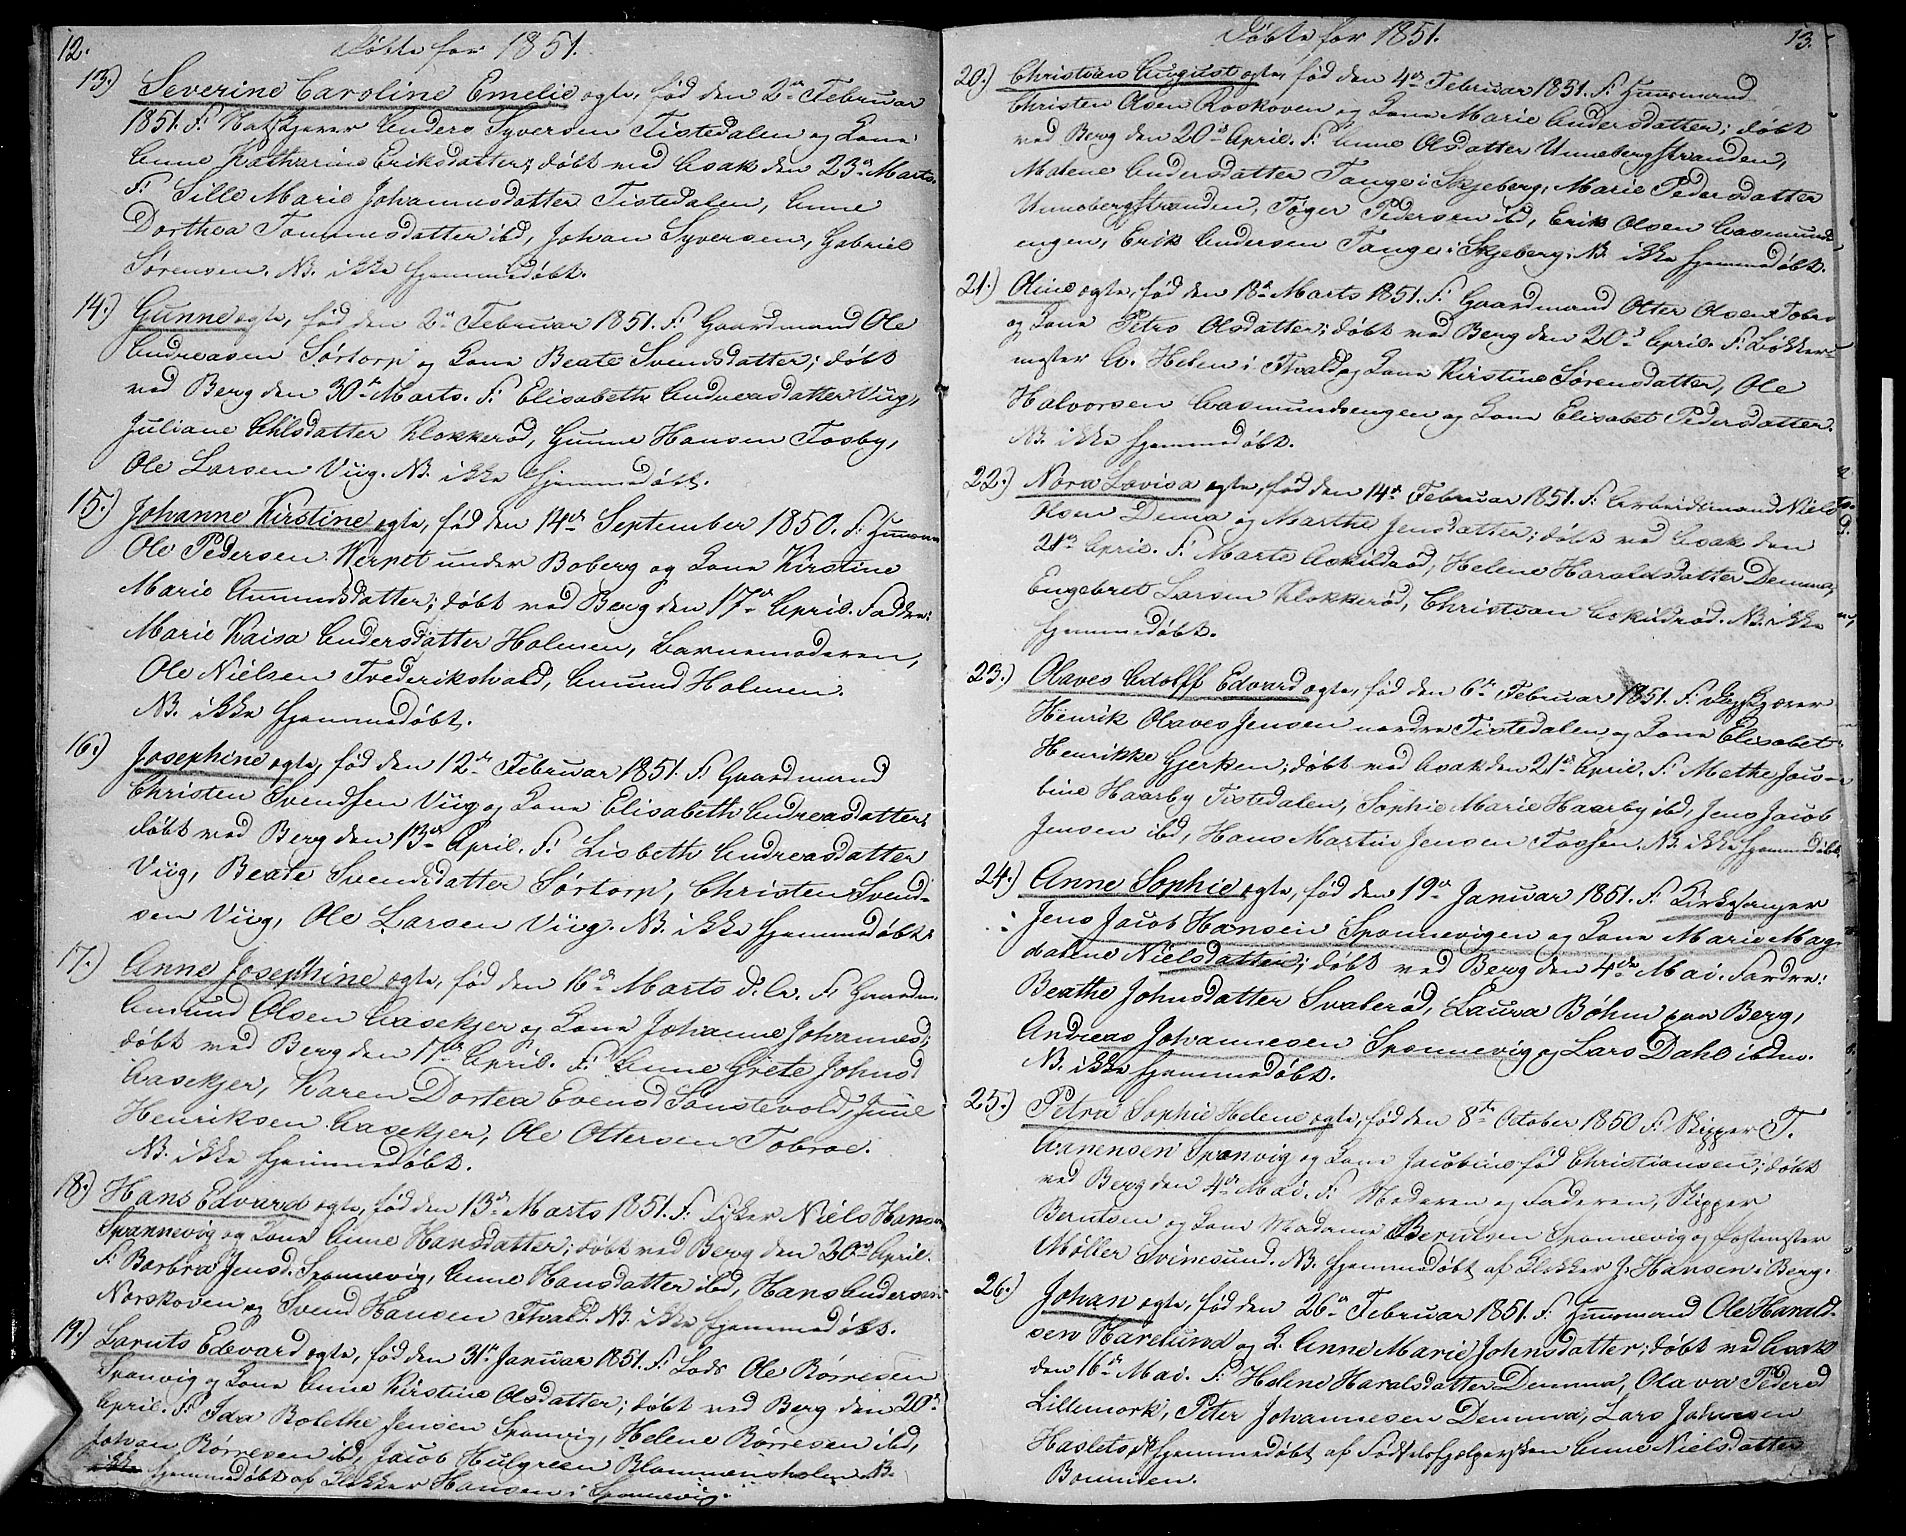 12.
Døbte for 1851.
13.) Severine Caroline Emelie ægte, fød den 2den Februar
1851. F: Anders Syversen Tistedalen og Kone
Anne Katharine Eriksdatter; døbt ved Asak den 23de Marts.
F: Sille Marie Johannesdatter Tistedalen, Anne
Dorthea Tommesdatter ibd, Johan Syversen, Gabriel
Sørensen. NB. ikke hjemmedøbt.
14.) Gunne ægte, fød den 2den Februar 1851. F: Gaardmand Ole
Andreasen Sørtorp og Kone Beate Svendsdatter; døbt
ved Berg den 30te Marts. F: Elisabeth Andreasdatter Viig,
Juliane Ohlsdatter Klokkerød, Gunne Hansen Tosby,
Ole Larsen Viig. NB. ikke hjemmedøbt.
15.) Johanne Kirstine ægte, fød den 14de September 1850. F: Huusm
Ole Pedersen Werpet under Boberg og Kone Kirstine
Marie Amundsdatter; døbt ved Berg den 17de April. Faddre:
Marie Kaisa Andersdatter Holmen, Barnemoderen,
Ole Nielsen Frederikshald, Amund Holmen.
NB. ikke hjemmedøbt.
16.) Josephine ægte, fød den 12te Februar 1851. F: Gaardmand
Christen Svendsen Viig og Kone Elisabeth Andreasdatter;
døbt ved Berg den 13de April. F: Lisbeth Andreasdatter
Viig, Beate Svendsdatter Sørtorp, Christen Svend-
sen Viig, Ole Larsen Viig. NB. ikke hjemmedøbt.
17.) Anne Josephine ægte, fød den 16de Marts d. Ar. F: Gaardm.
Amund Olsen Aasekjer og Kone Johanne Johannesd;
døbt ved Berg den 17de April. F: Anne Grete Johnsd
Aasekjer, Karen Dortea Evensd Sonstevold, Juul
Henriksen Aasekjer, Ole Ottersen Tobroe.
NB. ikke hjemmedøbt.
18.) Hans Edvard ægte, fød den 13de Marts 1851. F: Fisker Niels Hansen
Sponnevig og Kone Anne Hansdatter; døbt ved Berg den 20de April.
F: Barbra Jensd. Sponnevig, Anne Hansdatter ibd, Hans Andersen
Norskoven og Svend Hansen Fhald. NB. ikke hjemmedøbt.
19.) Lauruts Edevard ægte, fød den 31te Januar 1851. F: Lods Ole Børresen
Sponvig og Kone Anne Kirstine Olsdatter; døbt ved Berg den 20de
April. F: Ida Bolethe Jensen Sponvig, Helene Børresen ibd,
Johan Børresen ibd, Jacob Hulgreen Blommensholm NB.
ikke hjemmedøbt af Klokker Hansen i Sponnevig.
Døbte for 1851.
13.
20.) Christian August ægte, fød den 4de Februar 1851. F: Huusmand
Christen Olsen Roskoven og Kone Marie Andersdatter; døbt
ved Berg den 20de April. F: Anne Olsdatter Unnebergstranden,
Malene Andersdatter Tange i Skjeberg, Marie Pedersdatter
Unnebergstranden, Toger Pedersen ibd, Erik Olsen Aasmunds
engen, Erik Andersen Tange i Skjeberg. NB. ikke hjemmedøbt.
21.) Oline ægte, fød den 18de Marts 1851. F: Gaardmand Otter Olsen Tobro
og Kone Petro Olsdatter; døbt ved Berg den 20de April. F:
mester A. Helen i Fhald og Kone Kirstine Sørensdatter, Ole
Halvorsen Aasmundsengen og Kone Elisabet Pedersdatter.
NB. ikke hjemmedøbt.
22.) Nora Lovisa ægte, fød den 14de Februar 1851. F: Arbeidsmand Niels
Olsen Dema og Marthe Jensdatter; døbt ved Asak den
21de April. F: Marte Askildrød, Helene Haraldsdatter Demma,
Engebret Larsen Klokkerød, Christian Askildrød. NB. ikke
hjemmedøbt.
23.) Olaves Adolff Edvard ægte, fød den 6te Februar 1851. F:
Henrik Olaves Jensen nordre Tistedalen og Kone Elisabet
Henrikke Gjerken; døbt ved Asak den 21de April. F: Methe Jaco-
bine Haarby Tistedalen, Sophie Marie Haarby ibd, Jens Jacob
Jensen ibd, Hans Martin Jensen Fossen. NB. ikke hjemmedøbt.
24.) Anne Sophie ægte, fød den 19de Januar 1851. F: Kirkesanger
Jens Jacob Hansen Sponnevigen og Kone Marie Mag-
dalene Nielsdatter; døbt ved Berg den 4de Mai. Faddre:
Beathe Johnsdatter Svalerød, Laura Bøhm paa Berg,
Andreas Johannesen Sponnevig og Lars Dahl ibdm.
NB. ikke hjemmedøbt.
25.) Petra Sophie Helene ægte, fød den 8te October 1850 F: Skipper T.
Aanensen Sponvig og Kone Jacobine fød Christiansen; døbt
ved Berg den 4de Mai. F: Moderen og Faderen, Skipper
Berntsen og Kone Madame Berntsen Sponnevig og Postmester
Møller Svinesund. NB. hjemmedøbt af Klokker J. Hansen i Berg.
26.) Johan ægte, fød den 26de Februar 1851. F: Huusmand Ole Harald-
sen Harelund og K. Anne Marie Johnsdatter; døbt ved Asak
den 16de Mai. F: Helene Haralsdatter Demma, Olava Pedersd
Lillemork, Peter Johannesen Demma, Lars Johnsen
Haslet hjemmedøbt af Anne Nielsdatter